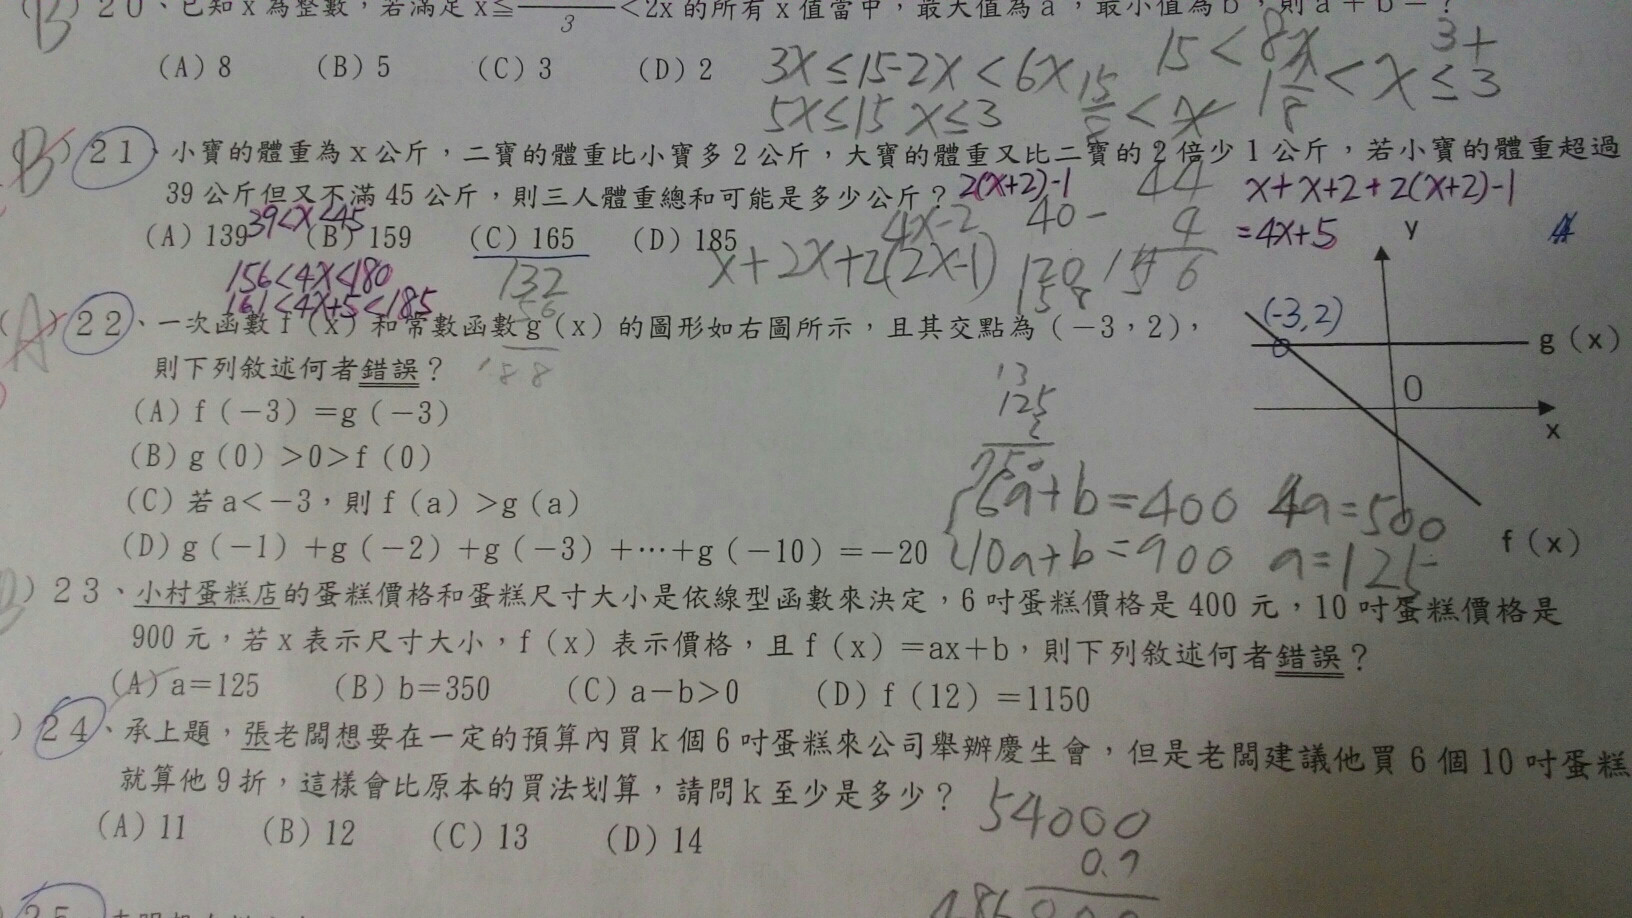 20、已知x為整數，若滿足x≦ <2x的所有x值當中，最大值為a，最小值為b，則a+b=?
3
(A) 8 (B) 5 (C) 3 (D) 2
3x≤15-2x<6x
15<8x
5x≤15 x≤3
15/8<x
1 7/8<x≤3
B
21、小寶的體重為x公斤，二寶的體重比小寶多2公斤，大寶的體重又比二寶的2倍少1公斤，若小寶的體重超過
39公斤但又不滿45公斤，則三人體重總和可能是多少公斤？
2(x+2)-1
44
x+x+2+2(x+2)-1
=4x+5
39<x<45
(A) 139 (B) 159 (C) 165 (D) 185
4x-2
40-
x+2x+2(2x-1)
156<4x<180
161<4x+5<185
132
56
188
y
A
22、一次函數f(x)和常數函數g(x)的圖形如右圖所示，且其交點為(-3，2)，
則下列敘述何者錯誤？
(-3,2)
g(x)
0
x
f(x)
(A) f(-3)=g(-3)
(B) g(0)>0>f(0)
(C) 若a<-3，則f(a)>g(a)
(D) g(-1)+g(-2)+g(-3)+…+g(-10)=-20
125
750
6a+b=400 4a=500
10a+b=900 a=125
23、小村蛋糕店的蛋糕價格和蛋糕尺寸大小是依線型函數來決定，6吋蛋糕價格是400元，10吋蛋糕價格是
900元，若x表示尺寸大小，f(x)表示價格，且f(x)=ax+b，則下列敘述何者錯誤？
(A) a=125 (B) b=350 (C) a-b>0 (D) f(12)=1150
24、承上題，張老闆想要在一定的預算內買k個6吋蛋糕來公司舉辦慶生會，但是老闆建議他買6個10吋蛋糕
就算他9折，這樣會比原本的買法划算，請問k至少是多少？
(A) 11 (B) 12 (C) 13 (D) 14
54000
0.9
25、